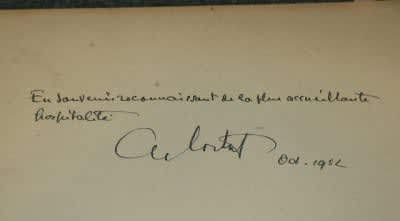 En souvenir reconnaissant de la plus accueillante
hospitalité
Oct. 1952